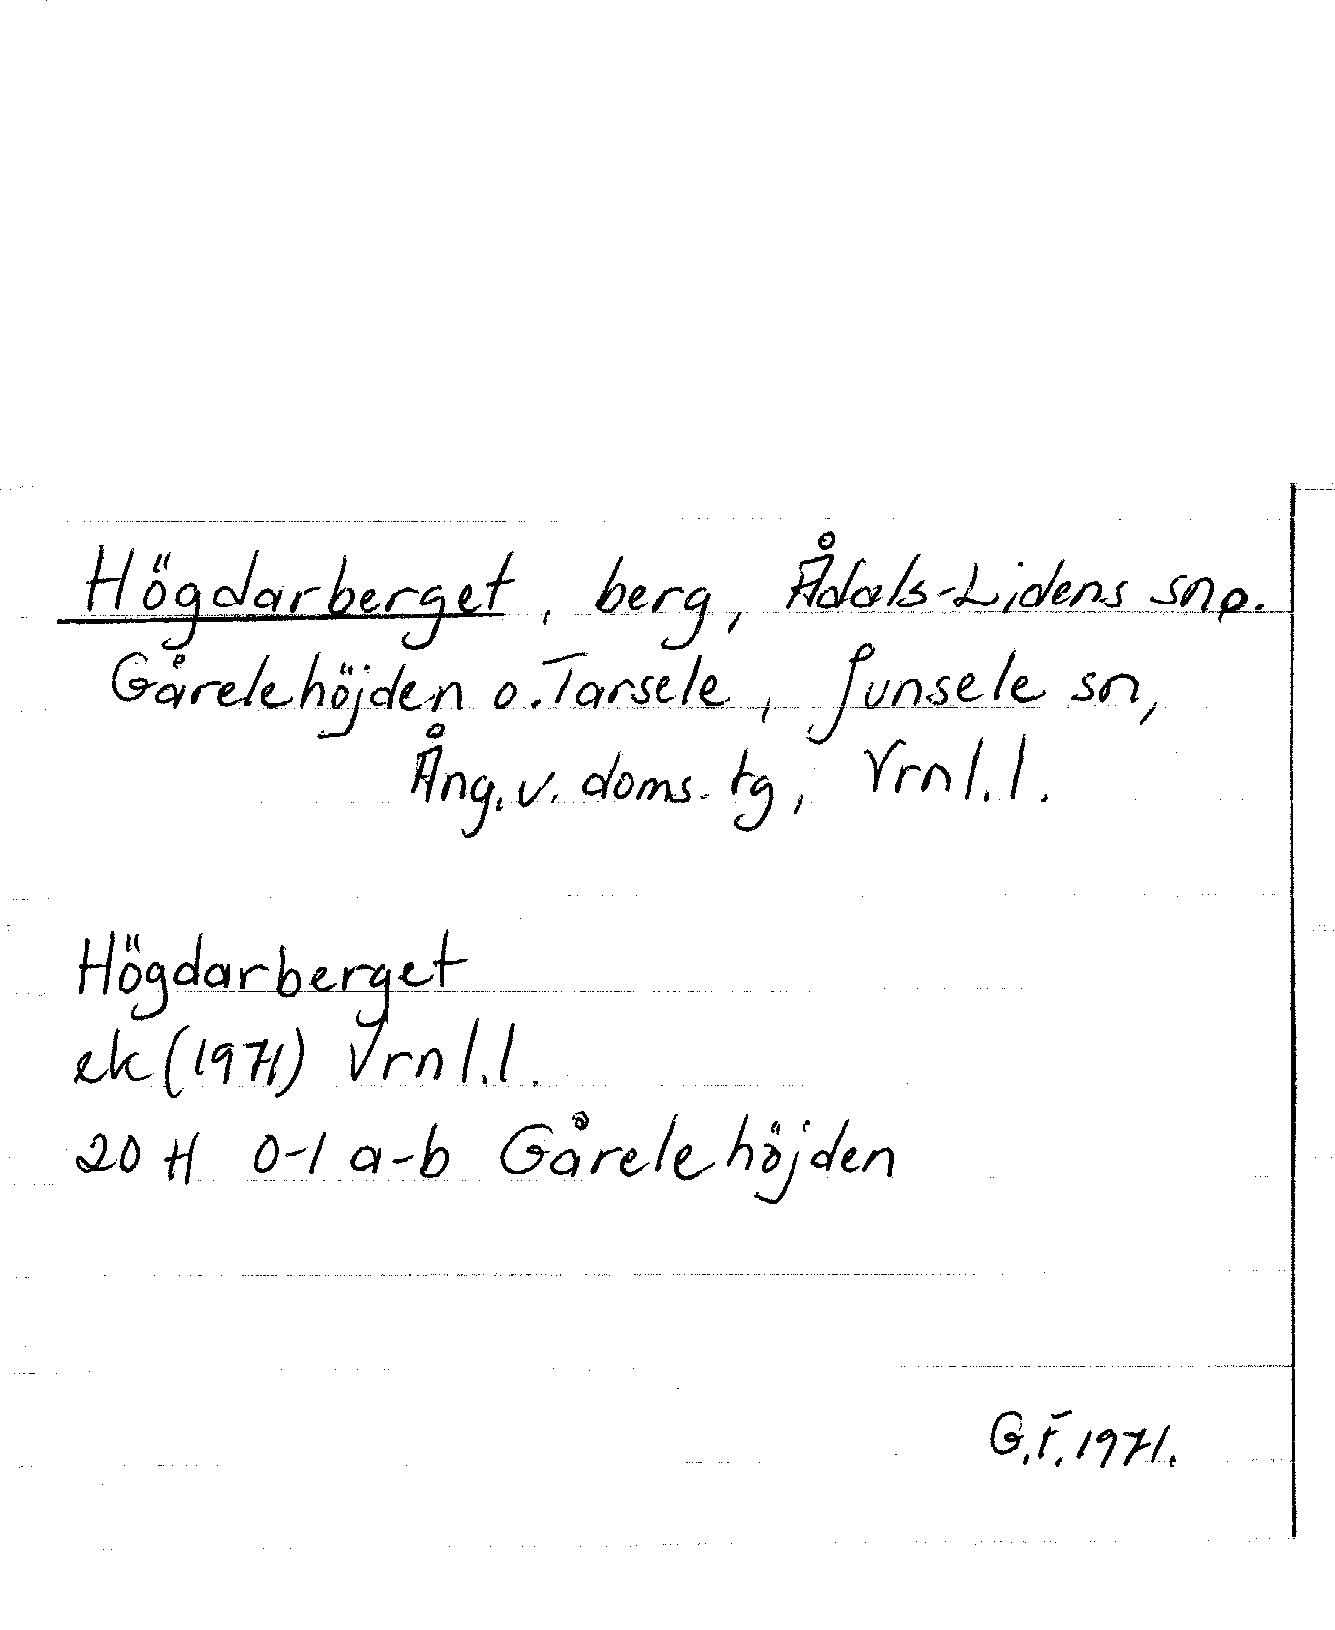 Högdarberget, berg, Ådals-Lidens sn o.
Gårelehöjden o. Tarsele, Junsele sn,
Ång. v. doms. tg, Vrnl.l.
Högdarberget
ek (1971) Vrnl.l.
20 H 0-1 a-b Gårelehöjden
G.F. 1971.